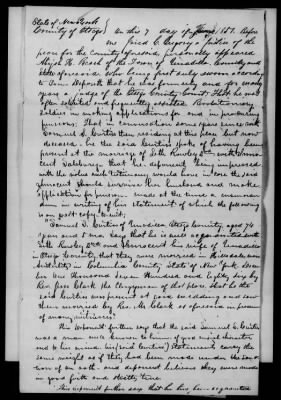 State of New York }
County of Otsego } On this 7 day of June 185 Before
me Jared C. Gregory a Justice of the
peace for the County aforesaid, personally appeared
H. Beach of the Town of Unadilla County and
State aforesaid who being first duly sworn according
to law Deposeth that he was formerly, and for many
years a Judge of the Otsego County Court; That he was
often solicited and frequently assisted Revolutionary
soldiers in making applications for and in procuring
pensions. That in conversation some years since with
Samuel S. Curtis then residing at this place but now
deceased. he the said Curtis spoke of having been
present at the marriage of Seth Rowley 2nd with
that he deponent being impressed
with the value such testimony would have in case the said
should survive her husband and make
application for pension made at the time a memorandum
in writing of his statement of which the following
is an exact copy to wit;
"Samuel S. Curtis of Unadilla Otsego County, aged 74
years and 8 mos. Says that he is well acquainted with
Seth Rowley 2nd and his wife of Unadilla
in Otsego County, that they were married in Hillsdale now
in Columbia County State of New York
One Thousand Seven Hundred and Eighty by
Rev. Clark the Clergyman of that place. that he the
said Curtis was present at said wedding and saw
them married by Rev. Mr. Clark as aforesaid in presence
of many witnesses"
This deponent further says that the said Samuel S. Curtis
was a man well known to him of good moral character
and to his mind his (said Curtis) Statements carry the
same weight as if they had been made under the
of an oath. and deponent believes they were made
in good faith and strictly true.
This deponent further says that he has been acquainted